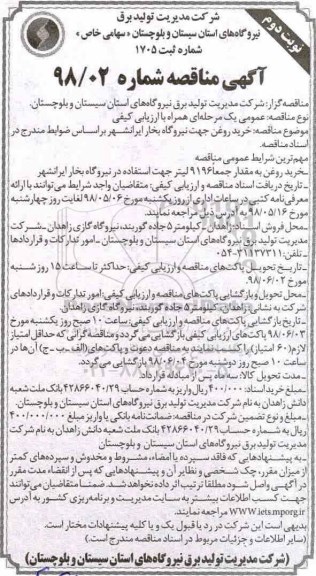 شرکت مدیریت تولید برق
نیروگاه‌های استان سیستان و بلوچستان «سهامی خاص»
شماره ثبت ۱۷۰۵
نوبت دوم
آگهی مناقصه شماره ۹۸/۰۲
مناقصه‌گزار: شرکت مدیریت تولید برق نیروگاه‌های استان سیستان و بلوچستان.
نوع مناقصه: عمومی یک مرحله‌ای همراه با ارزیابی کیفی
موضوع مناقصه: خرید روغن جهت نیروگاه بخار ایرانشهر براساس ضوابط مندرج در
اسناد مناقصه.
مهم‌ترین شرایط عمومی مناقصه
ـ خرید روغن به مقدار جمعا ۹۱۹۶ لیتر جهت استفاده در نیروگاه بخار ایرانشهر
ـ تاریخ دریافت اسناد مناقصه و ارزیابی کیفی: متقاضیان واجد شرایط می‌توانند با ارائه
معرفی‌نامه کتبی در ساعات اداری از روز یکشنبه مورخ ۹۸/۰۵/۰۶ لغایت روز چهارشنبه
مورخ ۹۸/۰۵/۱۶ به آدرس ذیل مراجعه نمایند.
ـ محل فروش اسناد: زاهدان ـ کیلومتر ۵ جاده گوربند، نیروگاه گازی زاهدان ـ شرکت
مدیریت تولید برق نیروگاه‌های استان سیستان و بلوچستان ـ امور تدارکات و قراردادها
ـ تلفن: ۳۱۱۳۷۳۱۱-۰۵۴
ـ تاریخ تحویل پاکت‌های مناقصه و ارزیابی کیفی: حداکثر تا ساعت ۱۵ روز شنبه
مورخ ۹۸/۰۶/۰۲.
ـ محل تحویل و بازگشایی پاکت‌های مناقصه و ارزیابی کیفی: امور تدارکات و قراردادهای
شرکت به نشانی زاهدان ـ کیلومتر ۵ جاده گوربند، نیروگاه گازی زاهدان.
ـ تاریخ بازگشایی پاکت‌های مناقصه و ارزیابی کیفی: ساعت ۱۰ صبح روز یکشنبه مورخ
۹۸/۰۶/۰۳ پاکت‌های ارزیابی کیفی بازگشایی می‌گردد و مناقصه‌گرانی که حداقل امتیاز
لازم (۶۰ امتیاز) را کسب نمایند به مناقصه دعوت و پاکت‌های (الف ـ ب ـ ج) آن‌ها در
ساعت ۱۰ صبح روز دوشنبه مورخ ۹۸/۰۶/۰۴ بازگشایی می‌گردد.
ـ مدت تحویل کالا: سه ماه پس از مبادله قرارداد
ـ مبلغ خرید اسناد: ۴۰۰/۰۰۰ ریال واریز به شماره حساب ۴۲۸۶۶۰۴۰/۲۹ بانک ملت شعبه
دانش زاهدان به نام شرکت مدیریت تولید برق نیروگاه‌های استان سیستان و بلوچستان.
ـ مبلغ و نوع تضمین شرکت در مناقصه: ضمانت‌نامه بانکی یا واریز مبلغ ۴۰۰/۰۰۰/۰۰۰
ریال به شماره حساب ۴۲۸۶۶۰۴۰/۲۹ بانک ملت شعبه دانش زاهدان به نام شرکت
مدیریت تولید برق نیروگاه‌های استان سیستان و بلوچستان
ـ به پیشنهادهایی که فاقد سپرده یا امضاء، مشروط و مخدوش و سپرده‌های کمتر
از میزان مقرر، چک شخصی و نظایر آن و پیشنهادهایی که پس از انقضاء مدت مقرر
در آگهی واصل شود مطلقا ترتیب اثر داده نخواهد شد. ضمنا متقاضیان می‌توانند
جهت کسب اطلاعات بیشتر به سایت مدیریت و برنامه‌ریزی کشور به آدرس
WWW.iets.mporg.ir مراجعه نمایند.
بدیهی است این شرکت در رد یا قبول یک و یا کلیه پیشنهادات مختار است.
(سایر اطلاعات و جزئیات مربوط در اسناد مناقصه مندرج است)
(شرکت مدیریت تولید برق نیروگاه‌های استان سیستان و بلوچستان)